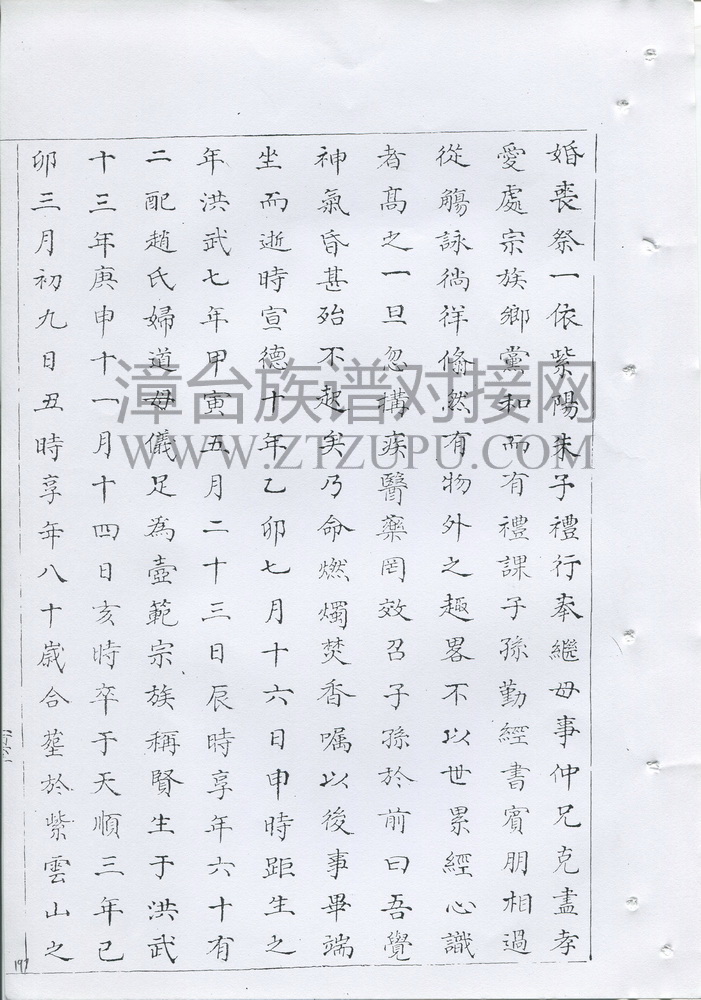 婚喪祭一依紫陽朱子禮行奉繼母事仲兄克盡孝
愛處宗族鄉黨和而有禮課子孫勤經書賓朋相過
從觴詠徜徉翛然有物外之趣畧不以世累經心識
者髙之一旦忽搆疾醫藥罔效召子孫於前曰吾覺
神氣昏甚殆不起矣乃命燃燭焚香囑以後事畢端
坐而逝時宣德十年乙卯七月十六日申時距生之
年洪武七年甲寅五月二十三日辰時享年六十有
二配趙氏婦道母儀足為壼範宗族稱賢生于洪武
十三年庚申十一月十四日亥時卒于天順三年己
卯三月初九日丑時享年八十歲合塟於紫雲山之
197
漳台族谱对接网
WWW.ZTZUPU.COM